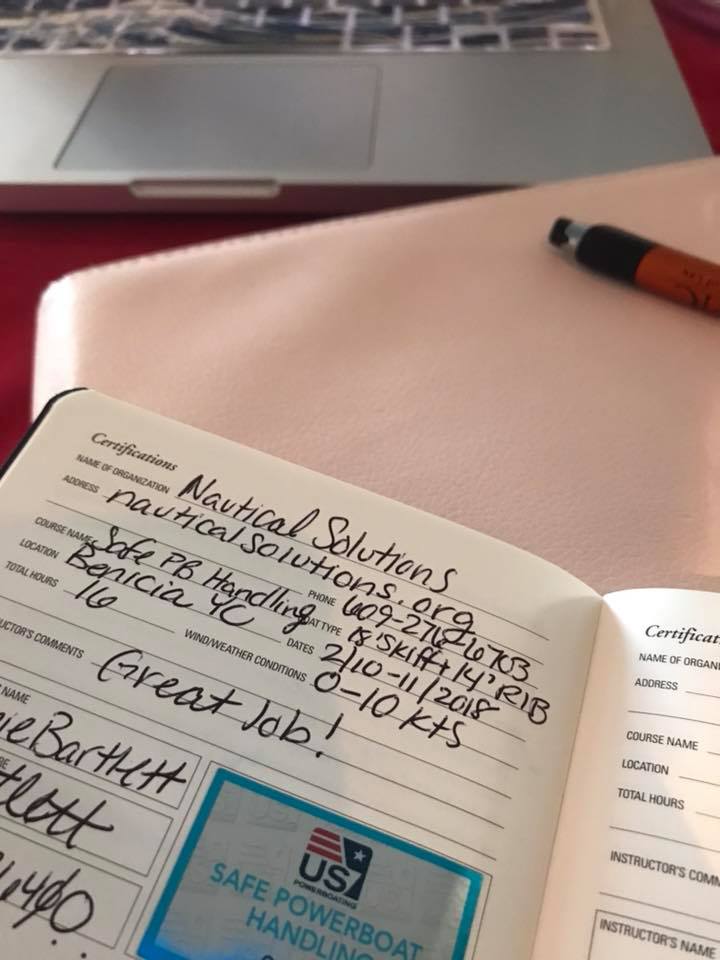 Certifications
NAME OF ORGANIZATION Nautical Solutions
ADDRESS nauticalsolutions.org
PHONE 609-276-6703
COURSE NAME Safe PB Handling
LOCATION Benicia YC
TOTAL HOURS 16
18' Skiff + 14' RIB
DATES 2/10-11/2018
WIND/WEATHER CONDITIONS 0-10 Kts
COMMENTS Great Job!
NAME
Bartlett
US
POWERBOATING
SAFE POWERBOAT
HANDLING
NAME OF
ADDRESS
COURSE NAME
LOCATION
TOTAL HOURS
INSTRUCTOR'S
INSTRUCTOR'S NAME